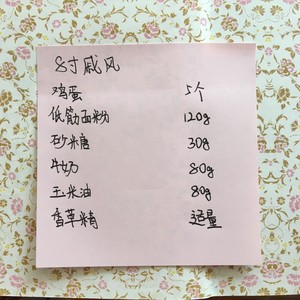 8寸戚风
鸡蛋 5个
低筋面粉 120g
砂糖 30g
牛奶 80g
玉米油 80g
香草精 适量